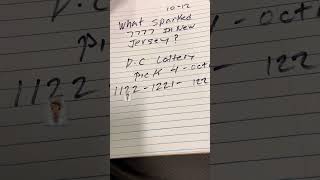 10-12
What sparked
7777 in New
Jersey?
D.C Lottery
Pick 4 - oct
1122 - 1221 - 122